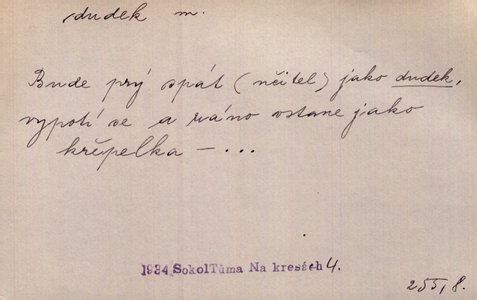 dudek m.
Bude prý spát (učitel) jako dudek,
vypotí se a ráno vstane jako
křepelka – ...
1934 SokolTůma Na kresách 4.
255, 8.